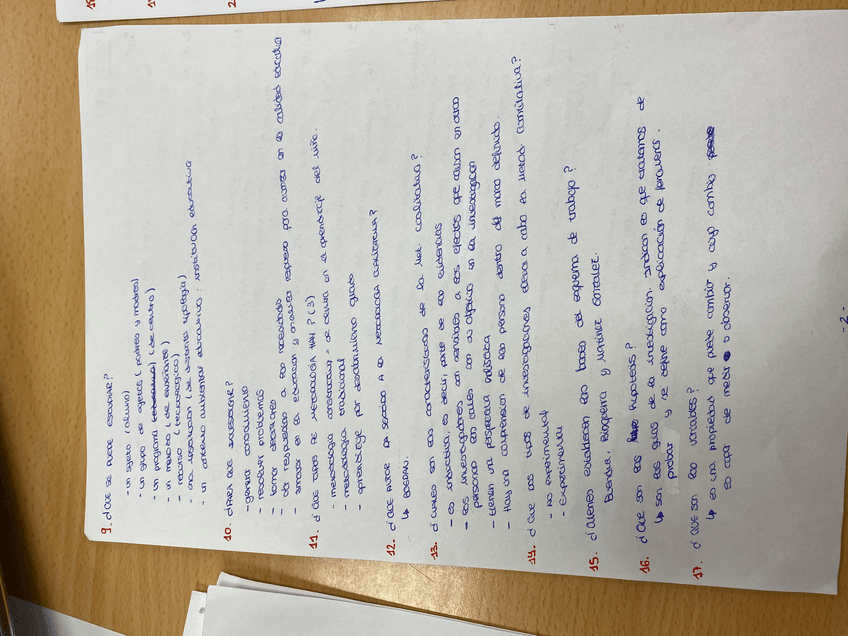 9. ¿Que se puede estudiar?
- un sujeto (alumno)
- un grupo de sujetos (padres y madres)
- un programa (de centro)
- un metodo (de enseñante)
- recurso (tecnologico)
- una institución (de distinta tipología)
- un contexto ambiental educativo: institucion educativa
10. ¿Para que investigar?
- generar conocimiento
- resolver problemas
- tomar decisiones
- dar respuestas a las necesidades
- innovar en la educacion y analizar respuesta para avanzar en la calidad educativa
11. ¿Que tipos de metodologia hay? (3)
- metodologia = se centra en el aprendizaje del niño.
- metodologia tradicional
- aprendizaje por descubrimiento guiado
12. ¿Que autor da sentido a la metodologia cualitativa?
↳ BOGDAN.
13. ¿Cuales son las caracteristicas de la Met. cualitativa?
- es inductiva, es decir, parte de las evidencias
- Los investigadores son sensibles a los efectos que causan en otras
personas con las cuales son su objetivo en la investigacion
- tienen una perspectiva holistica
- Hay una comprension de las personas dentro del marco definido.
14. ¿Que dos tipos de investigaciones lleva a cabo la metod. cuantitativa?
- no experimental
- Experimental
15. ¿Quienes establecen las bases del esquema de trabajo?
Buendia, Bisquerra y Martinez Gonzalez.
16. ¿Que son las hipotesis?
↳ son las guias de la investigacion. indican lo que tratamos de
probar y se define como explicación de fenomenos.
17. ¿Que son las variables?
↳ es una propiedad que puede cambiar y cuyo cambio
es capaz de medir o observar.
- 2 -